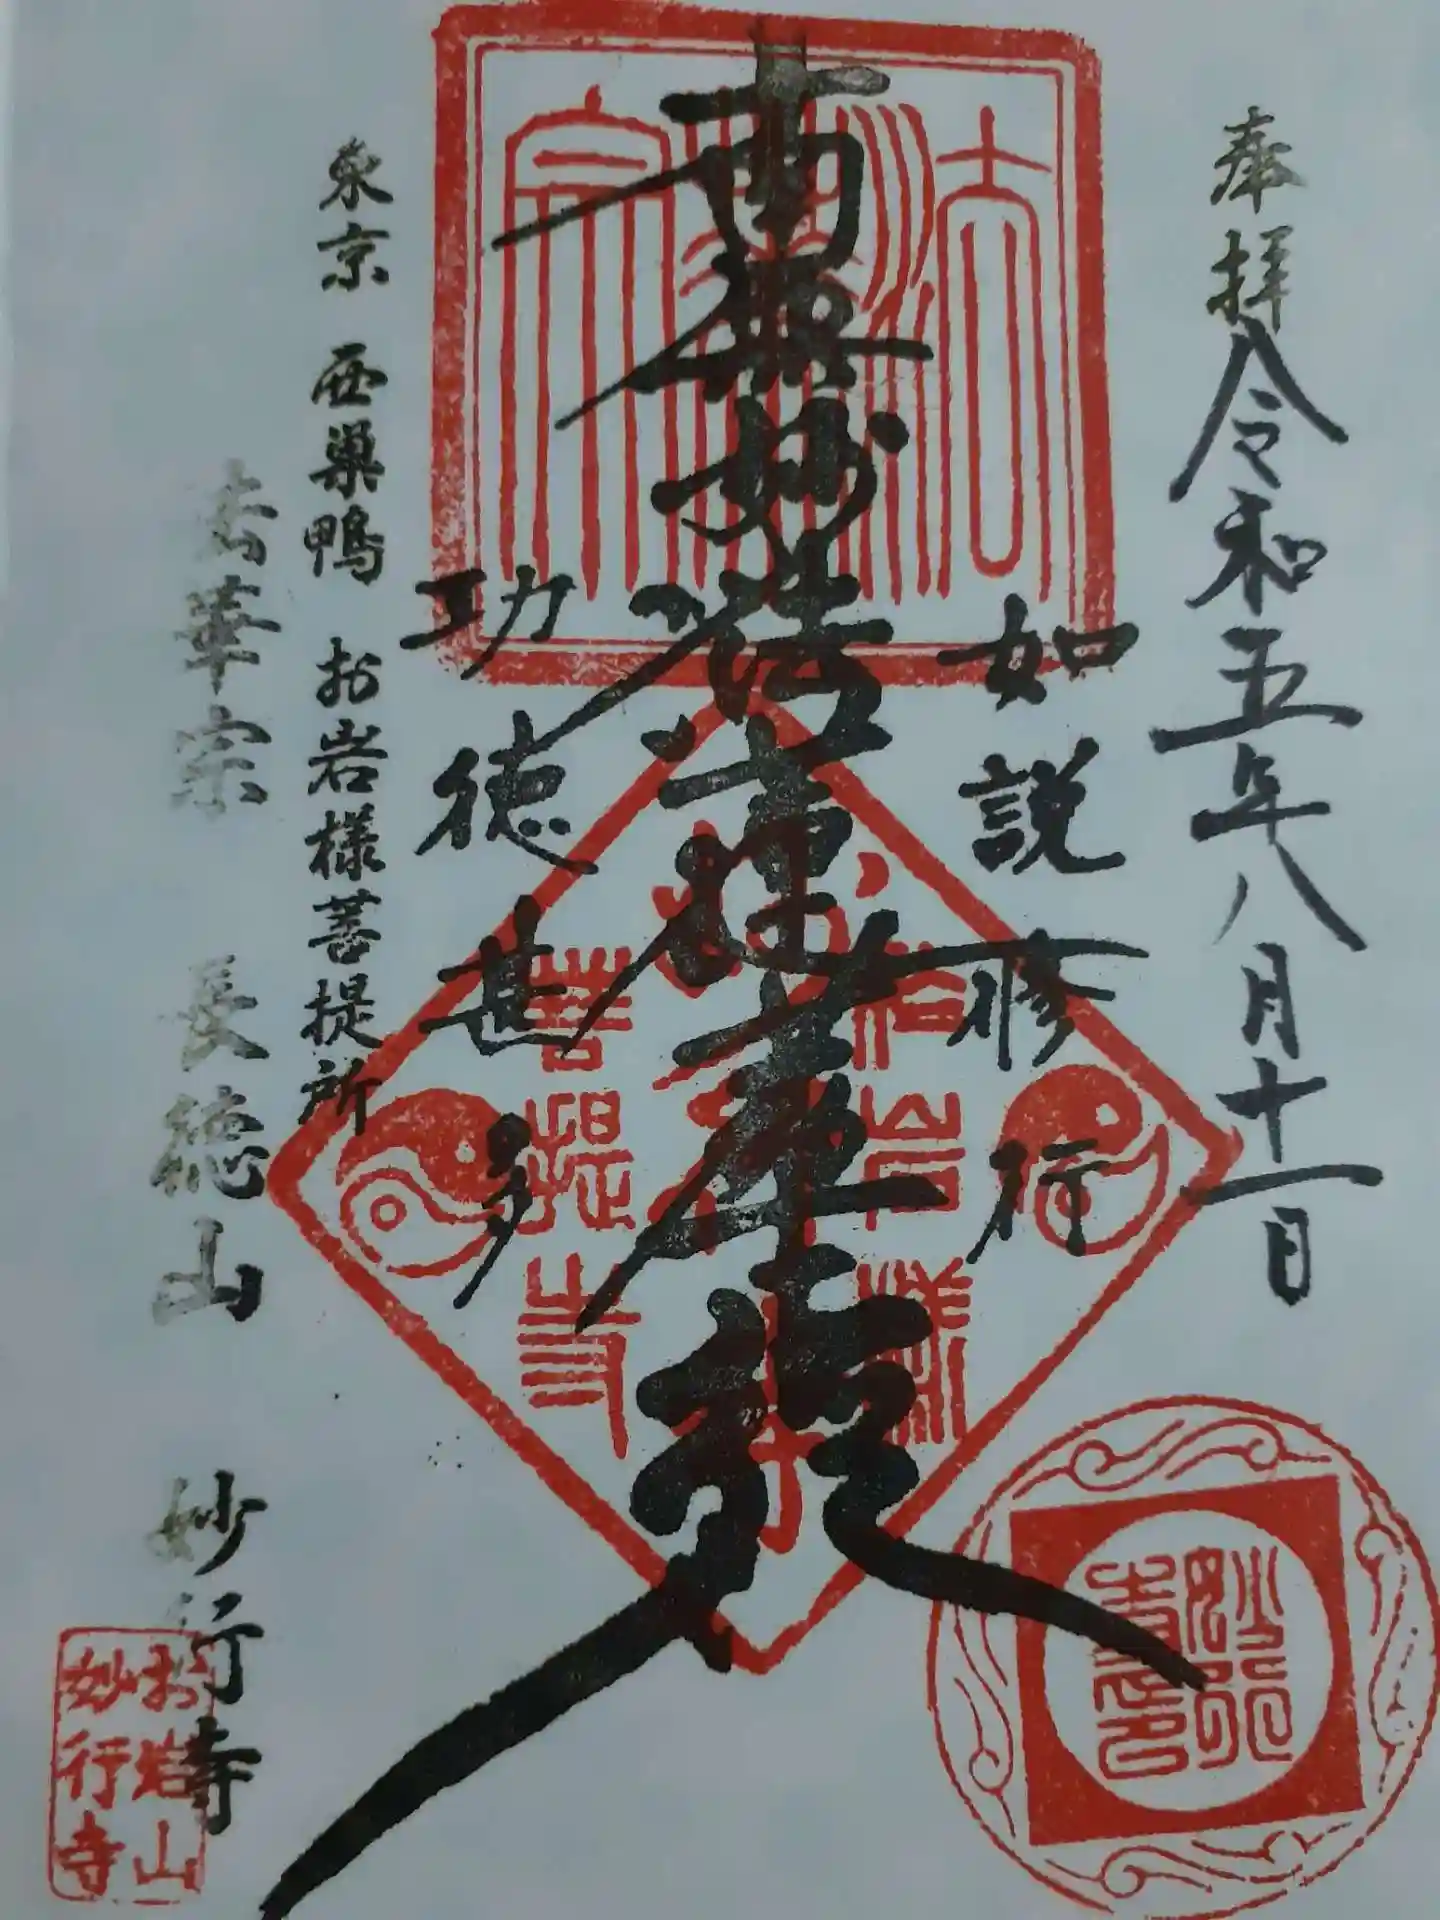 奉拝
令和五年八月十一日
如説修行
南無妙法蓮華経
功徳甚多
東京 西巣鴨 お岩様菩提所
法華宗 長徳山 妙行寺
法華宗
お岩様
菩提寺
妙行
寺印
お岩山
妙行寺